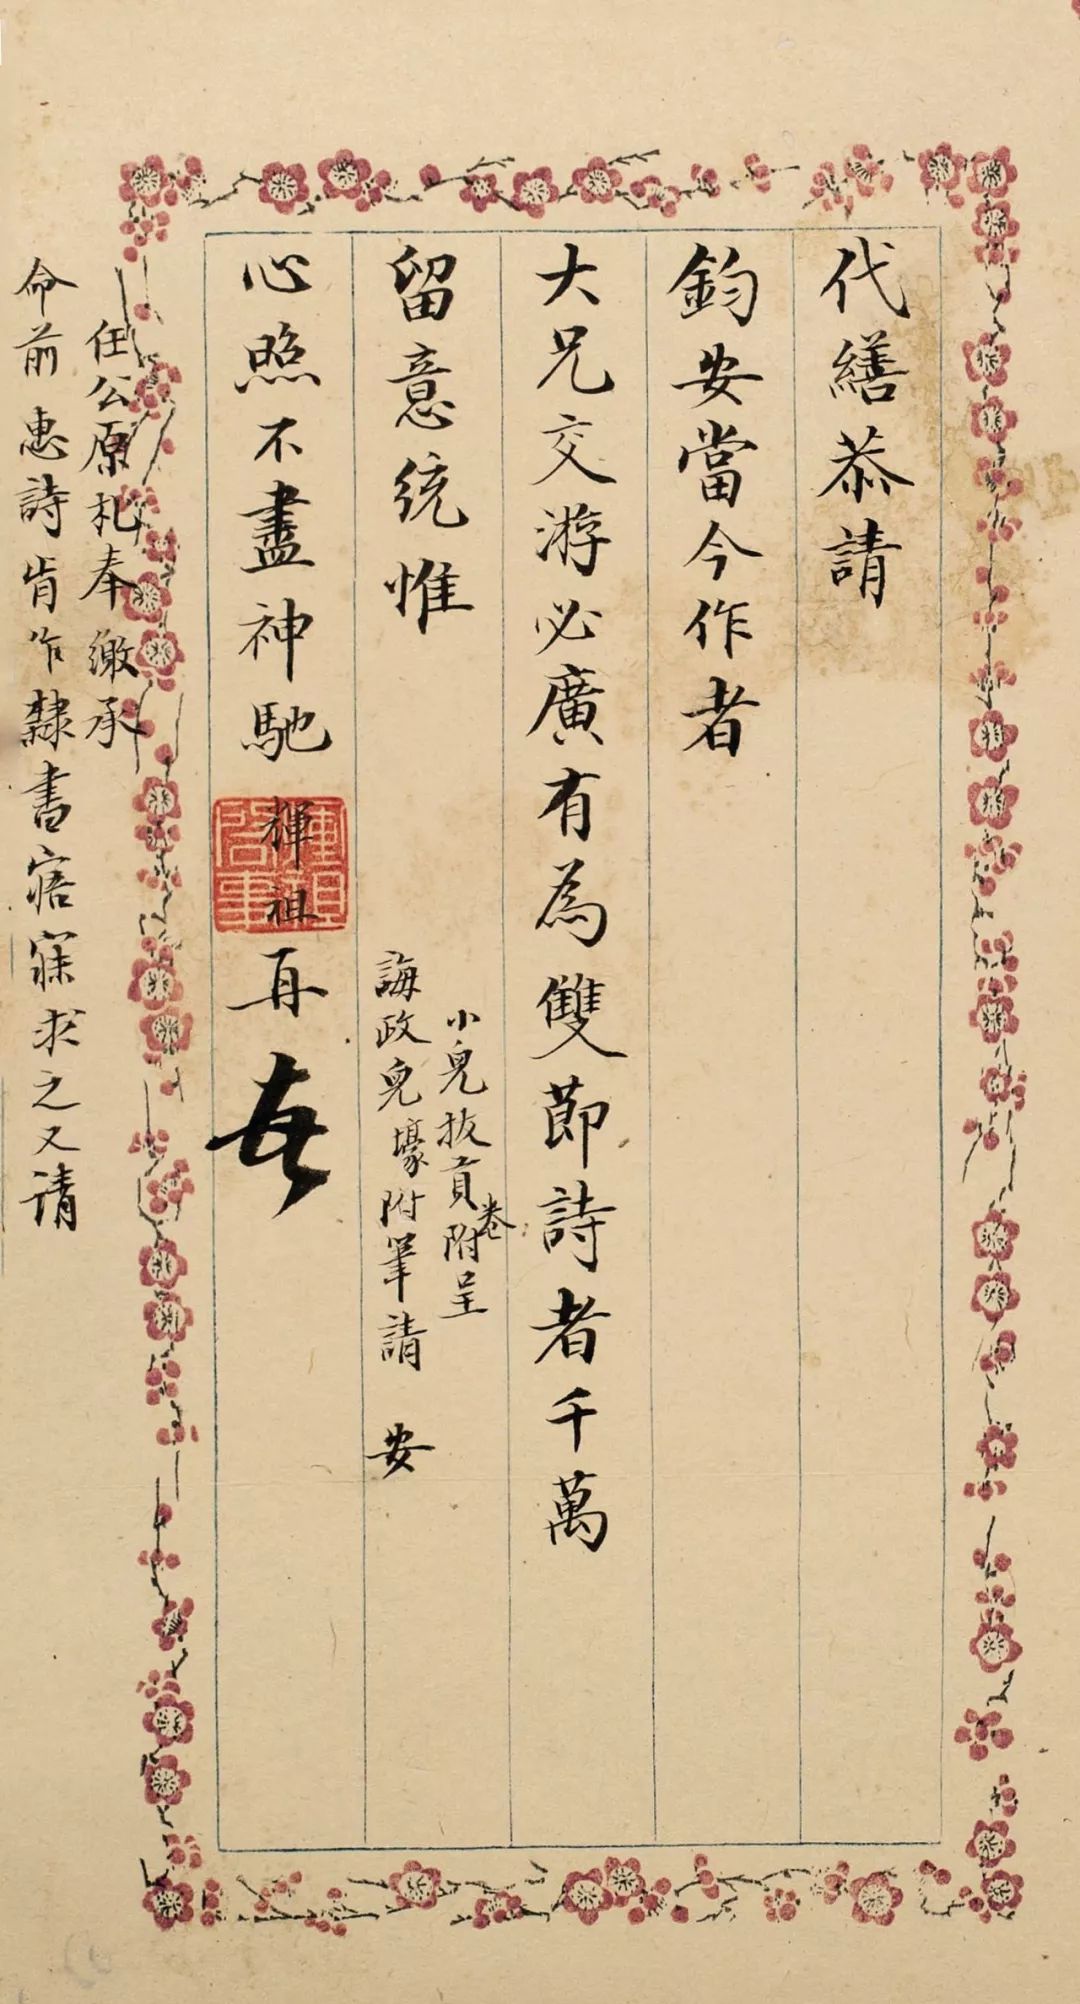 代繕恭請
鈞安當今作者
大兄交游必廣有為雙節詩者千萬
留意統惟
心照不盡神馳輝祖再
小兒拔貢卷附呈
誨政兒壕附筆請 安
任公原札奉繳承
命前惠詩肯作隸書寤寐求之又请